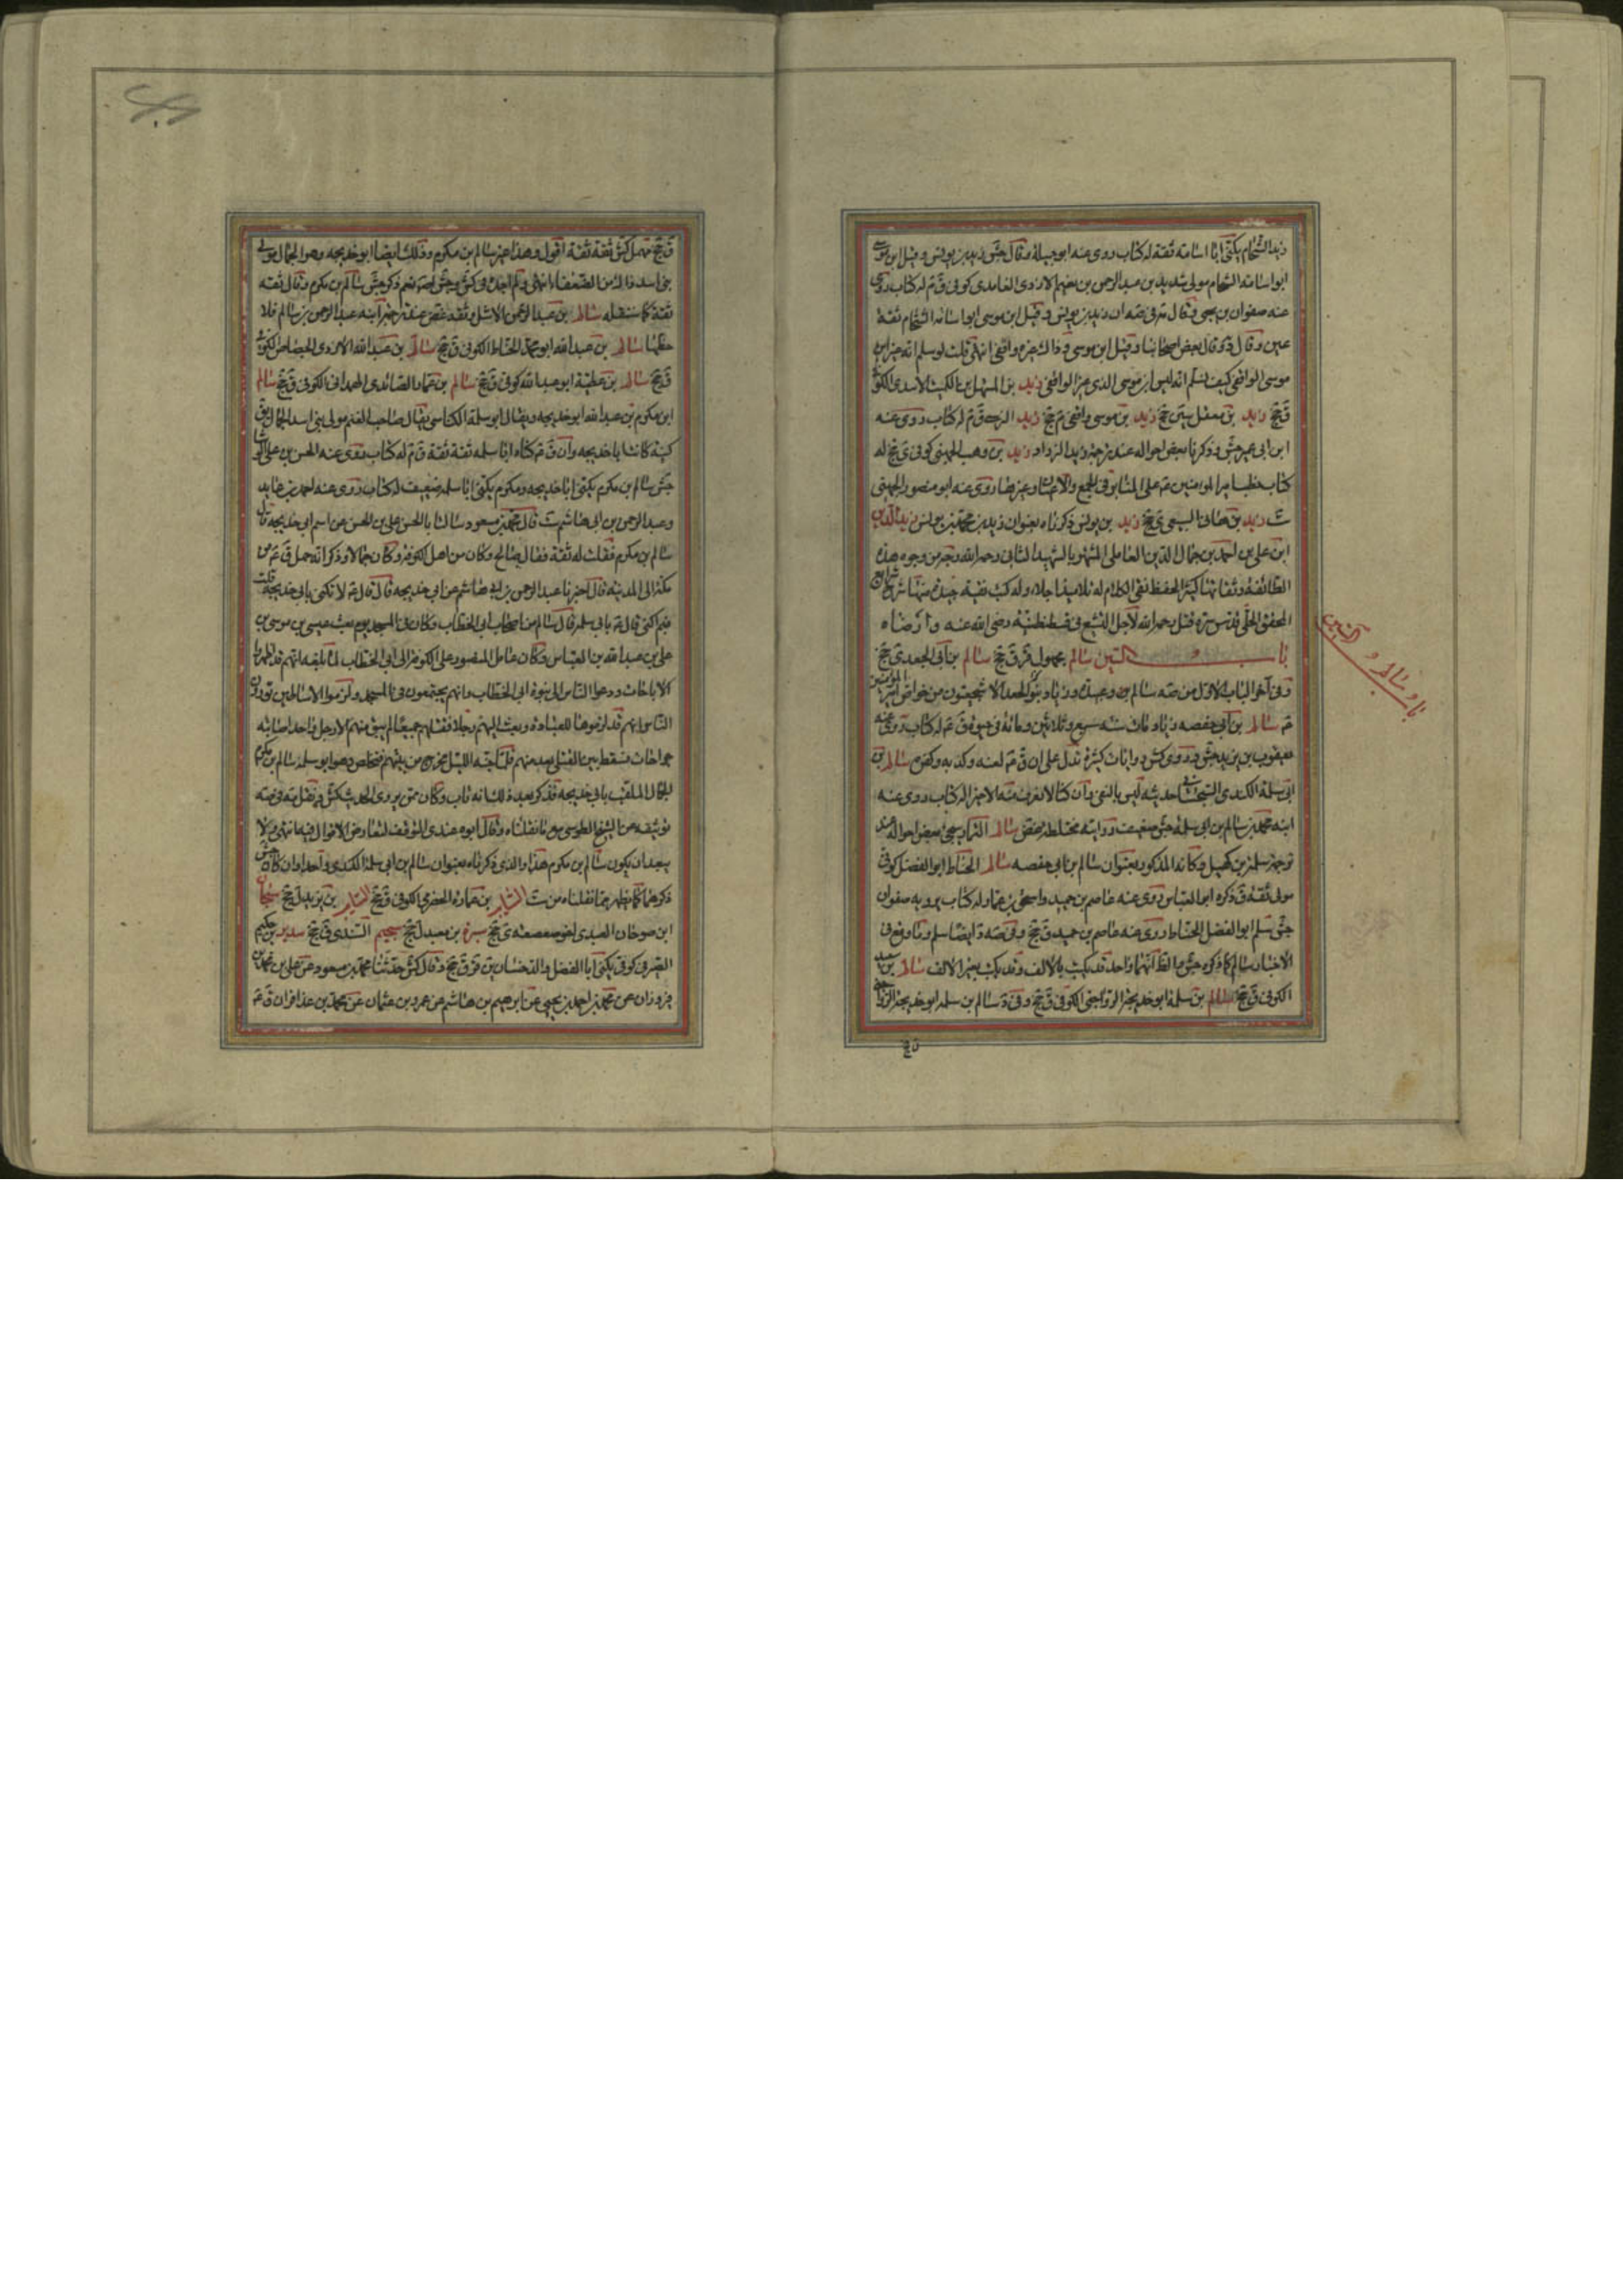 زيد الشحام يكنى ابا اسامة ثقة له كتاب روى عنه ابو جميلة وقال جش زيد بن يونس وقيل ابن موسى
ابو اسامة الشحام مولى شديد بن عبد الرحمن بن نعيم الازدى الغامدى كوفى ق م له كتاب روى
عنه صفوان بن يحيى وقال فى صه ان زيد بن يونس وقيل ابن موسى ابو اسامة الشحام ثقة
عين وقال بعض اصحابنا وقيل ابن موسى و ذاك واقفى انتهى قلت لو سلم انه ابن
موسى الواقفى كيف نسلم انه ليس ابن موسى الذى الواقفى زيد بن المستهل بن الكميت الاسدى الكوفى
ق جخ زيد بن معقل سين جخ زيد بن موسى واقفى م جخ زيد ق م له كتاب روى عنه
ابن ابى عمير جش و ذكرنا بعض احواله عند زيد الزراد زيد بن وهب الجهنى كوفى ى جخ له
كتاب خطب امير المؤمنين على المنابر فى الجمع والاعياد وغيرها روى عنه ابو منصور الجهنى
ست زيد بن هانى السبيعى ى جخ زيد بن يونس ذكرناه بعنوان زيد بن محمد بن يونس زين الدين
ابن على بن احمد بن جمال الدين العاملى المشهور بالشهيد الثانى رحمه الله وجه من وجوه هذه
الطائفة وثقاتها كثير الحفظ نقى الكلام له تلاميذ اجلاء وله كتب نفيسة جيدة منها شرح شرايع
المحقق الحلى قدس سره قتل رحمه الله لاجل التشيع فى قسطنطنية رضى الله عنه وارضاه
باب السين سالم مجهول قر ق جخ سالم بن ابى الجعد ى جخ
وفى آخر الباب الاول من صه سالم وعبيدة وزياد بنو الجعد الاشجعيون من خواص امير المؤمنين
م سالم بن ابى حفصه زياد مات سنه سبع وثلاثين ومائة فى حيوة ق م له كتاب روى عنه
يعقوب بن يزيد جش و روى كش روايات كثيرة تدل على ان ق م لعنه وكذبه وكفره سالم بن
ابى سلمة الكندى السجستانى حديثه ليس بالنقى وان كنا لا نعرف منه الا خيرا له كتاب روى عنه
ابنه محمد بن سالم بن ابى سلمة جش ضعيف روايته مختلطة غض سالم التمار سيجئ بعض احواله عند
ترجمة سلمة بن كهيل وكانه المذكور بعنوان سالم بن ابى حفصه سالم الحناط ابو الفضل كوفى
مولى ثقة ق ذكره ابو العباس روى عنه عاصم بن حميد واسحق بن عمار وله كتاب يرويه صفوان
جش سلم ابو الفضل الحناط روى عنه عاصم بن حميد ق جخ وفى صه ايضا سلم وما وقع فى
الاخبار سالم كما ذكره جش والظ انهما واحد قد يكتب بالالف وقد يكتب بغير الالف سالم بن سعيد
الكوفى ق جخ سالم بن سلمة ابو خديجة الرواجنى الكوفى ق جخ وفى سالم بن سلمه ابو خديجة الرواجنى
باب سالم و الخ
ق جخ كش ثقة ثقة اقول وهذا غير سالم بن مكرم وذلك ايضا ابو خديجه وهو الجمال مولى
بنى اسد ذاك من الضعفاء انتهى ولم اجده فى كش وجش اصلا نعم ذكر جش سالم بن مكرم وقال ثقه
ثقة كما سننقله سالم بن عبد الرحمن الاشل ثقه غض عند ترجمة ابنه عبد الرحمن بن سالم فلا
حظها سالم بن عبد الله ابو محمد الحناط الكوفى ق جخ سالم بن عبد الله الازدى الجصاص الكوفى
ق جخ سالم بن عطية ابو عبد الله كوفى ق جخ سالم بن عمار الصائدى الهمدانى الكوفى ق جخ سالم
ابن مكرم بن عبد الله ابو خديجه ويقال ابو سلمة الكناسى يقال صاحب الغنم مولى بنى اسد الجمال يق
كنيته كانت ابا خديجه وان ق م كناه ابا سلمه ثقة ثقة ق م له كتاب روى عنه الحسن بن على الوشا
جش سالم بن مكرم يكنى ابا خديجه ومكرم يكنى ابا سلمه ضعيف له كتاب روى عنه احمد بن عايذ
وعبد الرحمن بن ابى هاشم ست قال محمد بن مسعود سالت ابا الحسن على بن الحسن عن اسم ابى خديجة قال
سالم بن مكرم فقلت له ثقة فقال صالح وكان من اهل الكوفة وكان جمالا وذكر انه حمل ق م من
مكة الى المدينة قال اخبرنا عبد الرحمن بن ابى هاشم عن ابى خديجه قال قال م لا تكتنى بابى خديجة قلت
فبم اكتنى قال م بابى سلمة وقال سالم من اصحاب ابى الخطاب وكان فى المسجد يوم بعث عيسى بن موسى بن
على بن عبد الله بن العباس وكان عامل المنصور على الكوفة الى ابى الخطاب لما بلغه انهم قد اظهروا
الاباحات ودعوا الناس الى نبوة ابى الخطاب وانهم يجتمعون فى المسجد ولزموا الاساطين يورون
الناس انهم قد لزموها للعبادة وبعث اليهم رجلا فقتلهم جميعا لم يفلت منهم الا رجل واحد اصابته
جراحات فسقط بين القتلى يعد منهم فلما جنه الليل خرج من بينهم فتخلص وهو ابو سلمة سالم بن مكرم
الجمال الملقب بابى خديجه فذكر بعد ذلك انه تاب وكان ممن يروى الحديث كش و نقل فى صه
توثيقه عن الشيخ الطوسى مع ما نقلناه وقال الوجه عندى التوقف لتعارض الاقوال فيه انتهى ولا
يبعد ان يكون سالم بن مكرم هذا والذى ذكرناه بعنوان سالم بن ابى سلمة الكندى واحدا وان كان جش
ذكرهما كما يظهر مما نقلناه من ست السايب بن عمارة الحضرمى الكوفى ق جخ السايب بن يزيد ل جخ سبحان
ابن صوحان العبدى اخو صعصعة ى جخ سبرة بن معبد ل جخ سحيم السندى ق جخ سدير بن حكيم
الصيرفى كوفى يكنى ابا الفضل والد حنان ين قر ق جخ وقال كش حدثنا محمد بن مسعود عن على بن محمد بن
فيروزان عن محمد بن احمد بن يحيى عن ابراهيم بن هاشم عن عمرو بن عثمان عن محمد بن عذافر ان ق م